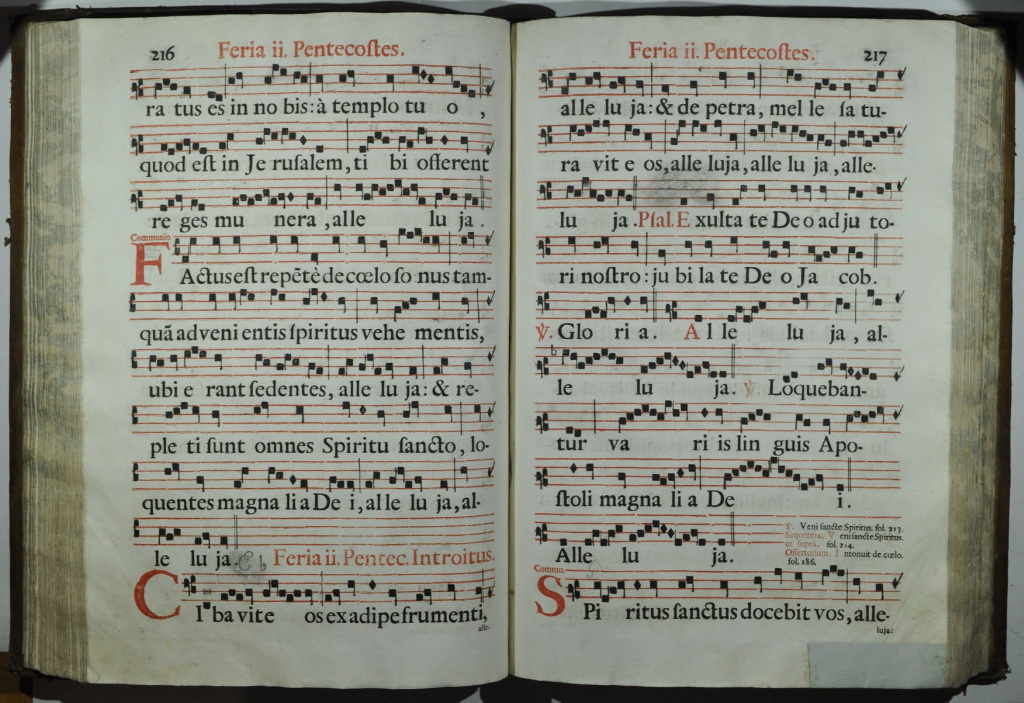 216 Feria ii. Pentecoſtes.
ra tus es in no bis: à templo tu o ,
quod eſt in Je ruſalem, ti bi offerent
re ges mu nera , alle lu ja .
Communio.
FActus eſt repētè de cœlo ſo nus tam-
quā adveni entis ſpiritus vehe mentis,
ubi e rant ſedentes, alle lu ja: & re-
ple ti ſunt omnes Spiritu ſancto, lo-
quentes magna li a De i, al le lu ja, al-
le lu ja.
Feria ii. Pentec. Introitus.
CI ba vit e os ex adipe frumenti,
alle-
Feria ii. Pentecoſtes. 217
al le lu ja: & de petra, mel le ſa tu-
ra vit e os, alle luja, alle lu ja , alle-
lu ja. Pſal. E xulta te De o ad ju to-
ri noſtro: ju bi la te De o Ja cob.
℣. Glo ri a. A l le lu ja , al-
le lu ja. ℣ Loqueban-
tur va ri is lin guis Apo-
ſtoli magna li a De i.
Alle lu ja.
℣. Veni ſancte Spiritus. fol. 213.
Sequentia. V eni ſancte Spiritus.
ut ſuprà. fol. 214.
Offertorium. I ntonuit de cœlo.
fol. 286.
Commu.
SPi ritus ſanctus docebit vos, alle-
luja: